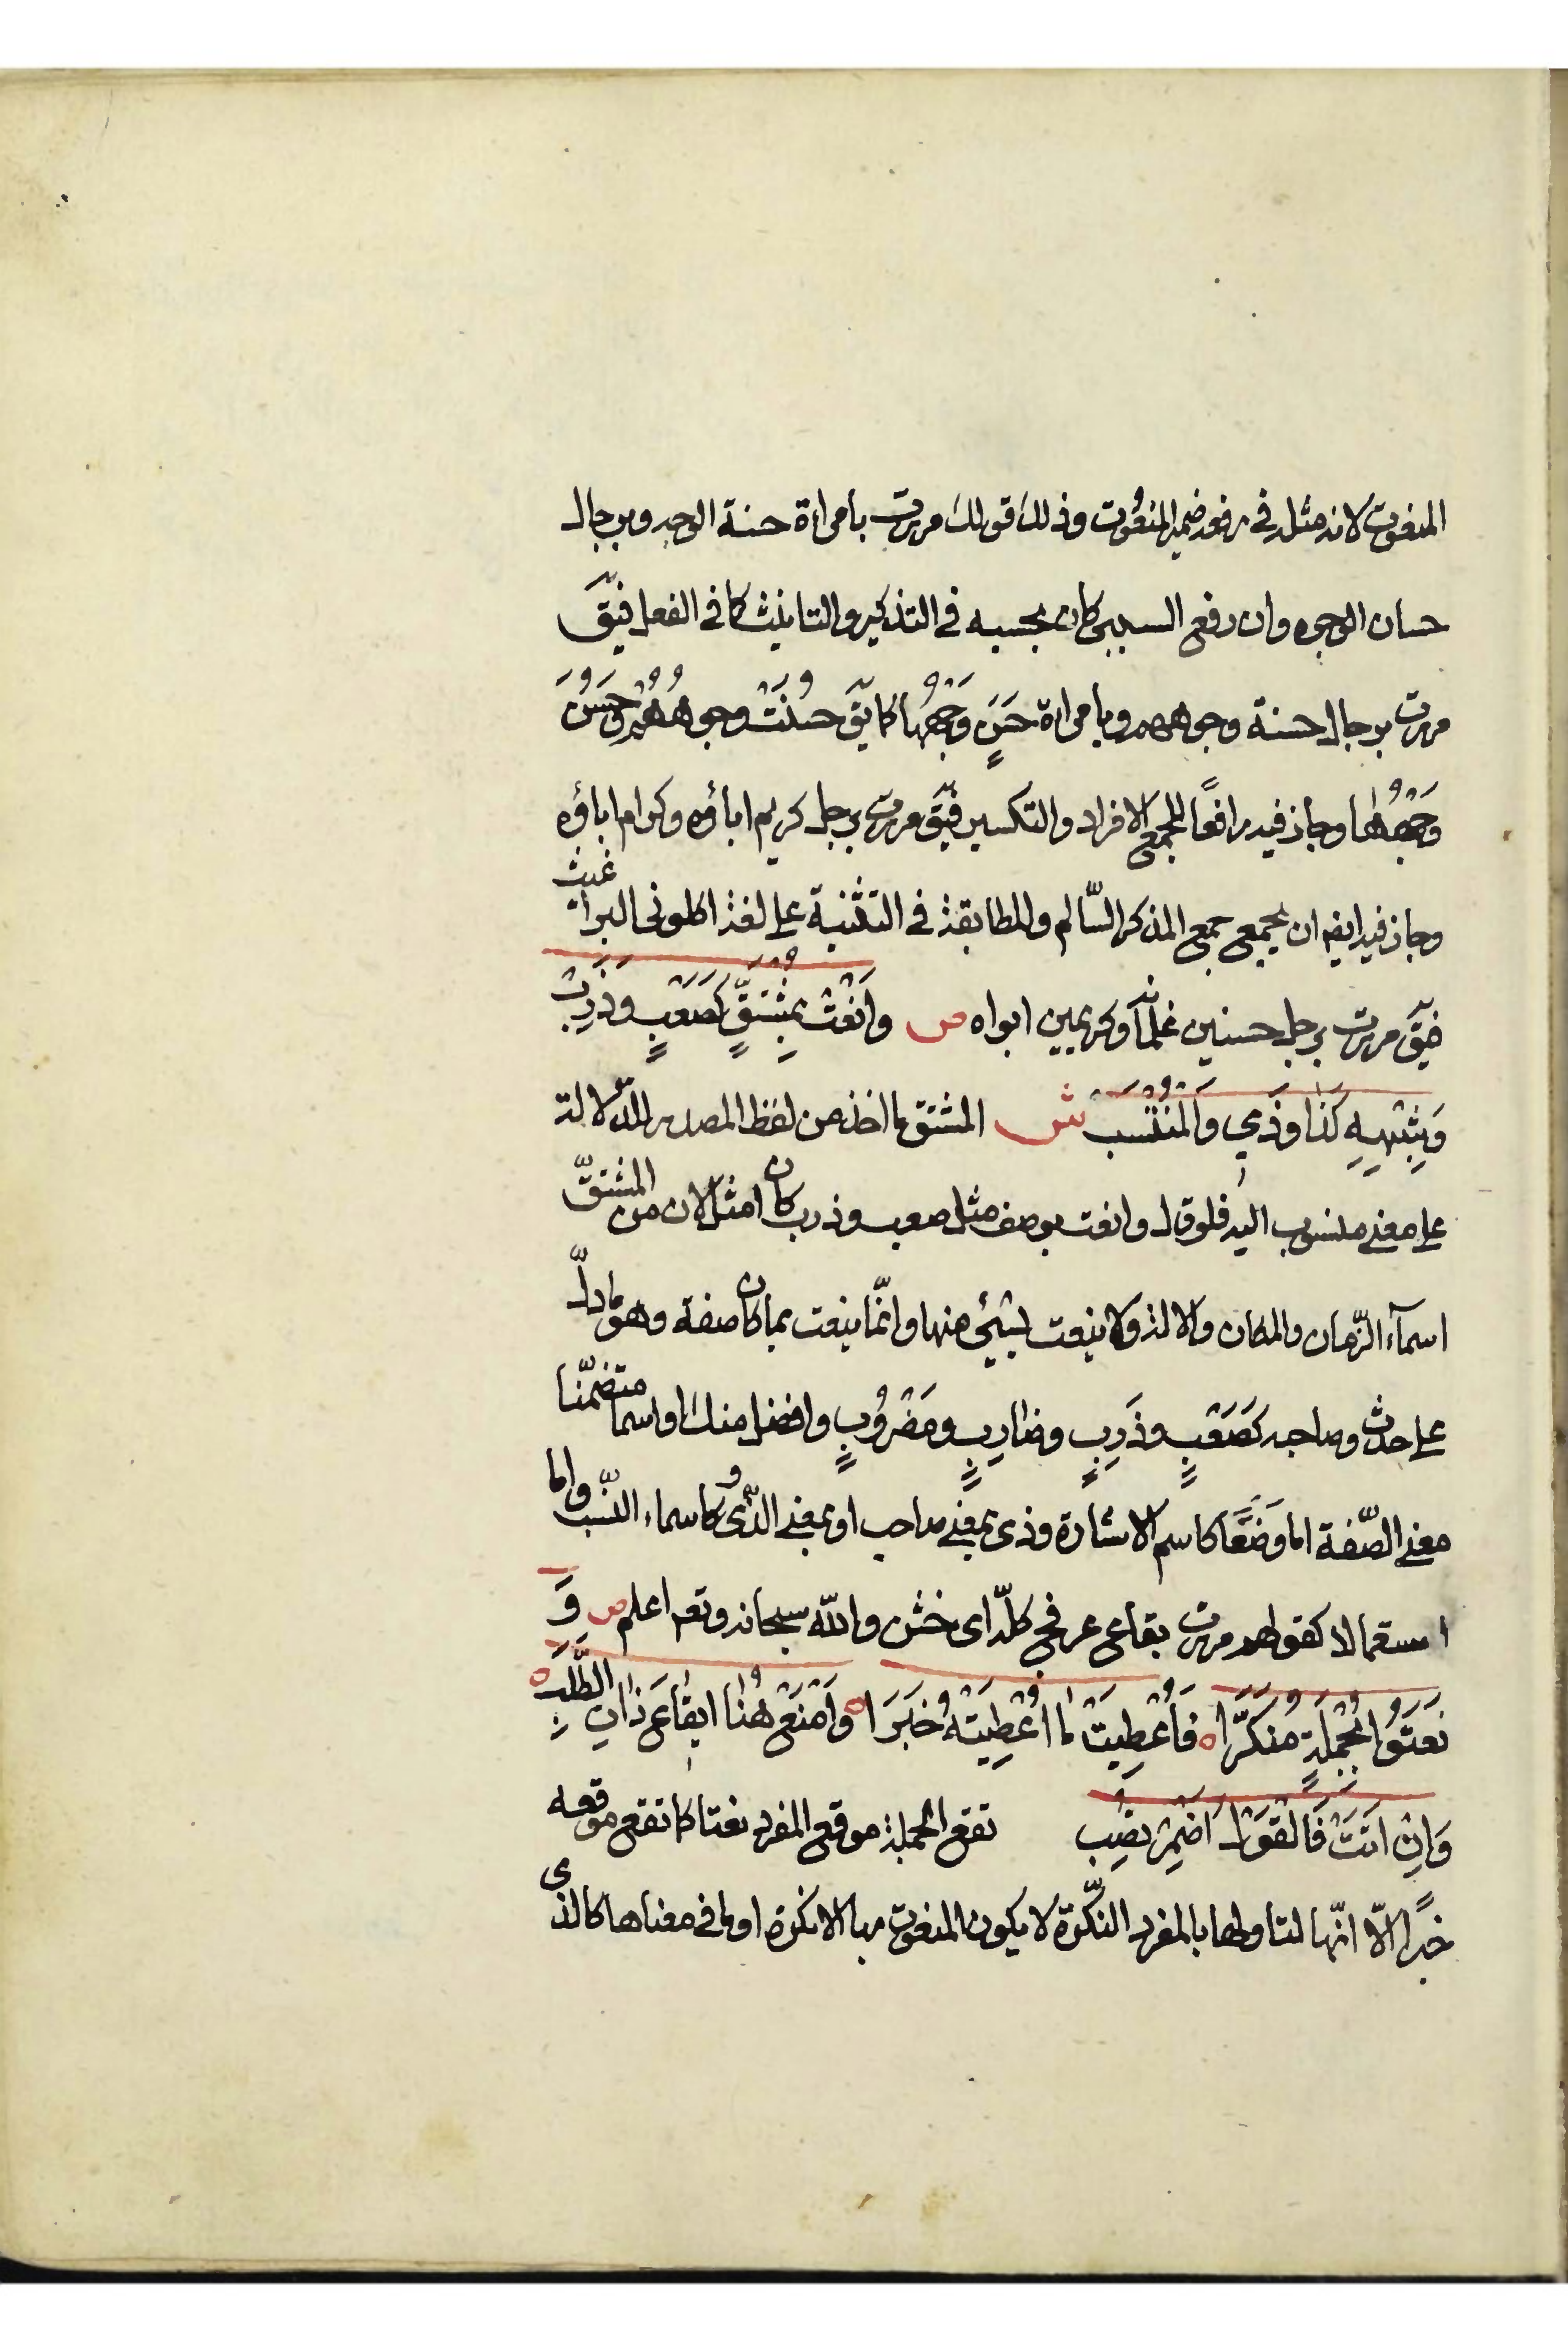 المنعوت لانه مثله في رفعه ضمير المنعوت وذلك قولك مررت بامراة حسنة الوجه وبرجال
حسان الوجوه وان رفع السببي كان بحسبه في التذكير والتانيث كما في الفعل فيق
مررت برجال حسنة وجوههم وبامراة حَسَنٍ وَجْهُها كما يق حسُنَتْ وجوهُهُم وحَسُنَ
وَجْهُها وجاز فيه رافعًا للجمع الافراد والتكسير فيق مررت برجل كريم اباؤه وكرام اباؤه
وجاز فيه ايضا ان يجمع جمع المذكر السّالم والمطابقة في التثنية على لغة اكلوني البراغيث
فيق مررت برجل حسنين غلمانه وكريمين ابواه ص وانْعَتْ بمُشْتَقٍّ كَصَعْبٍ وَذَرِبْ
وَشِبْهِهِ كَذَا وَذِي وَالمُنْتَسِبْ ش المشتق ما اخذ من لفظ المصدر للدّلالة
على معنى منسوب اليه فلو قال وانعت بوصف مثل صعب وذرب كان امثل لان من المشتقّ
اسمآء الزّمان والمكان والالة ولا ينعت بشيئ منها وانّما ينعت بما كان صفة وهو ما دلّ
على حدث وصاحبه كَصَعْبٍ وذَرِبٍ وضارِبٍ ومَضْرُوبٍ وافضل منك او اسما متضمّنا
معنى الصّفة اما وَضْعًا كاسم الاشارة وذى بمعنى صاحب او بمعنى الّذى وكاسماء النّسب واما
استعمالا كقولهم مررت بقاع عرفج كلّه اى خشن والله سبحانه وتعم اعلم ص وَ
نَعَتُوا بِجُمْلَةٍ مُنَكَّرَا فَأُعْطِيَتْ ما اُعْطِيَتْهُ خَبَرَا وَامْنَعْ هُنا ايقاعَ ذاتِ الطَّلَبِ
وَاِنْ اَتَتْ فَالقَوْلَ اَضْمِرْ تُصِبِ تقع الجملة موقع المفرد نعتا كما تقع موقعه
خبرًا الّا انّها لتاولها بالمفرد النكّرة لا يكون المنعوت بها الا نكرة او ما في معناها كالذى